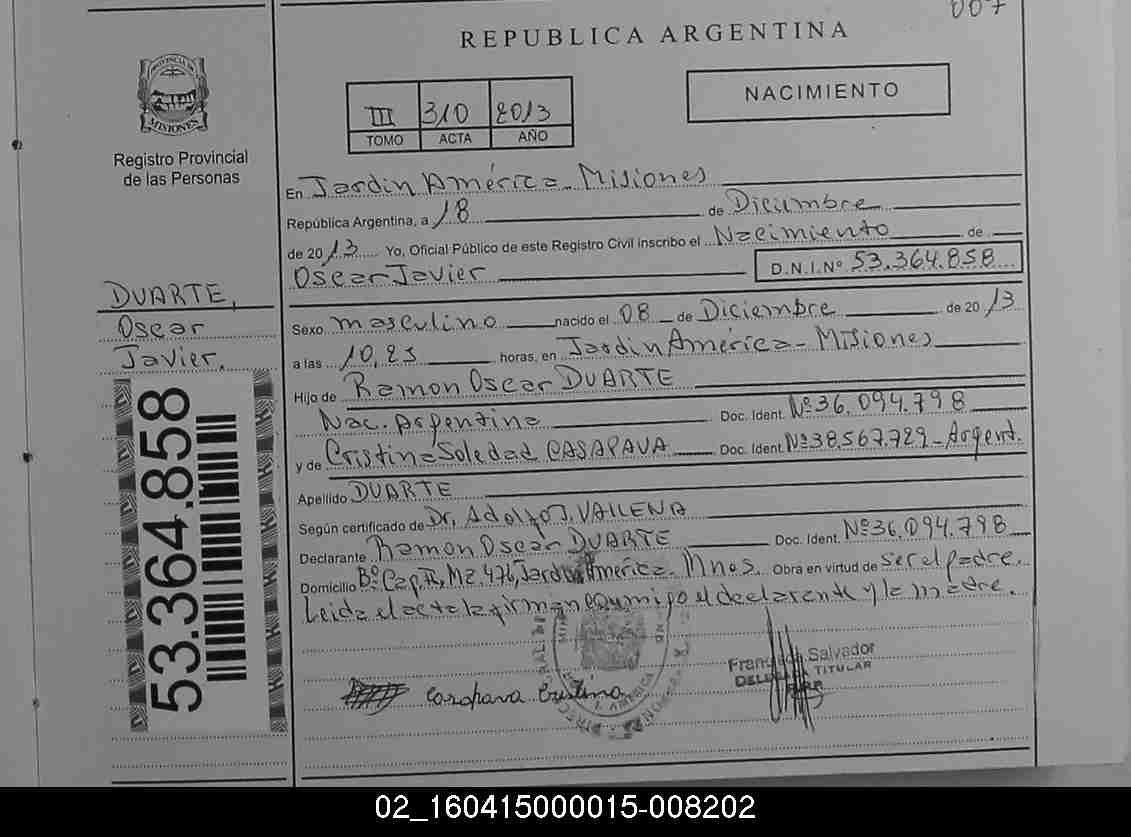 007
REPUBLICA ARGENTINA
PROVINCIA DE
MISIONES
Registro Provincial
de las Personas
III 310 2013
TOMO ACTA AÑO
NACIMIENTO
En Jardin América - Misiones
República Argentina, a 18 de Diciembre
de 2013 Yo, Oficial Público de este Registro Civil inscribo el Nacimiento de
Oscar Javier D.N.I.Nº 53.364.858
DUARTE,
Oscar
Javier.
53.364.858
Sexo masculino nacido el 08 de Diciembre de 2013
a las 10,25 horas, en Jardin América - Misiones
Hijo de Ramon Oscar DUARTE
Nac. Argentina Doc. Ident. Nº36.094.798
y de Cristina Soledad CASAPAVA Doc. Ident. Nº38.567.729 - Argent.
Apellido DUARTE
Según certificado de Dr. Adolfo J. VAILENA
Declarante Ramon Oscar DUARTE Doc. Ident. Nº36.094.798
Domicilio Bº Cap. Mz. 476, Jardin América - Mnes. Obra en virtud de ser el padre.
Leida el acta la firman conmigo el declarante y la madre.
Casapava Cristina
Salvador
TITULAR
02_160415000015-008202